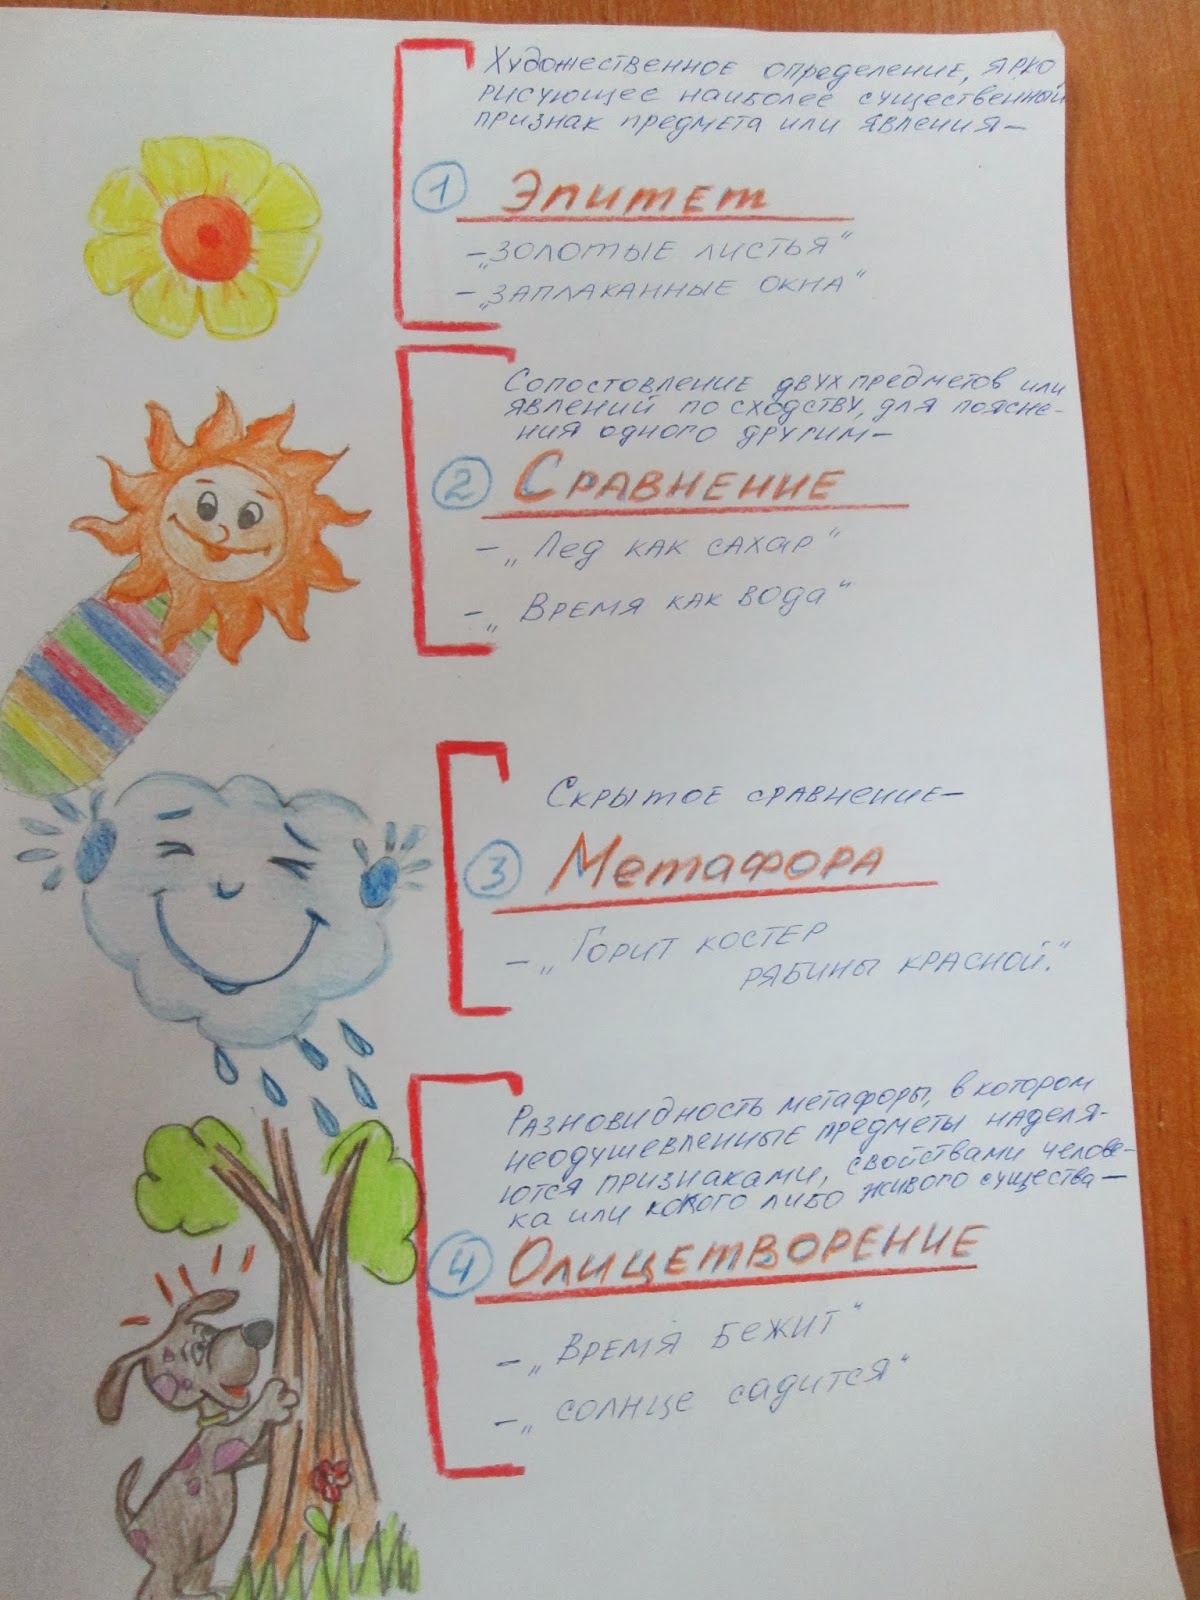 Художественное определение, ярко
рисующее наиболее существенный
признак предмета или явления—
1 Эпитет
– „золотые листья“
– „заплаканные окна“
Сопостовление двух предметов или
явлений по сходству, для поясне-
ния одного другим—
2 Сравнение
– „Лед как сахар“
– „Время как вода“
Скрытое сравнение—
3 Метафора
– „Горит костер
рябины красной.“
Разновидность метафоры, в котором
неодушевленные предметы наделя-
ются признаками, свойствами челове-
ка или кокого либо живого существа—
4 Олицетворение
– „Время бежит“
– „солнце садится“